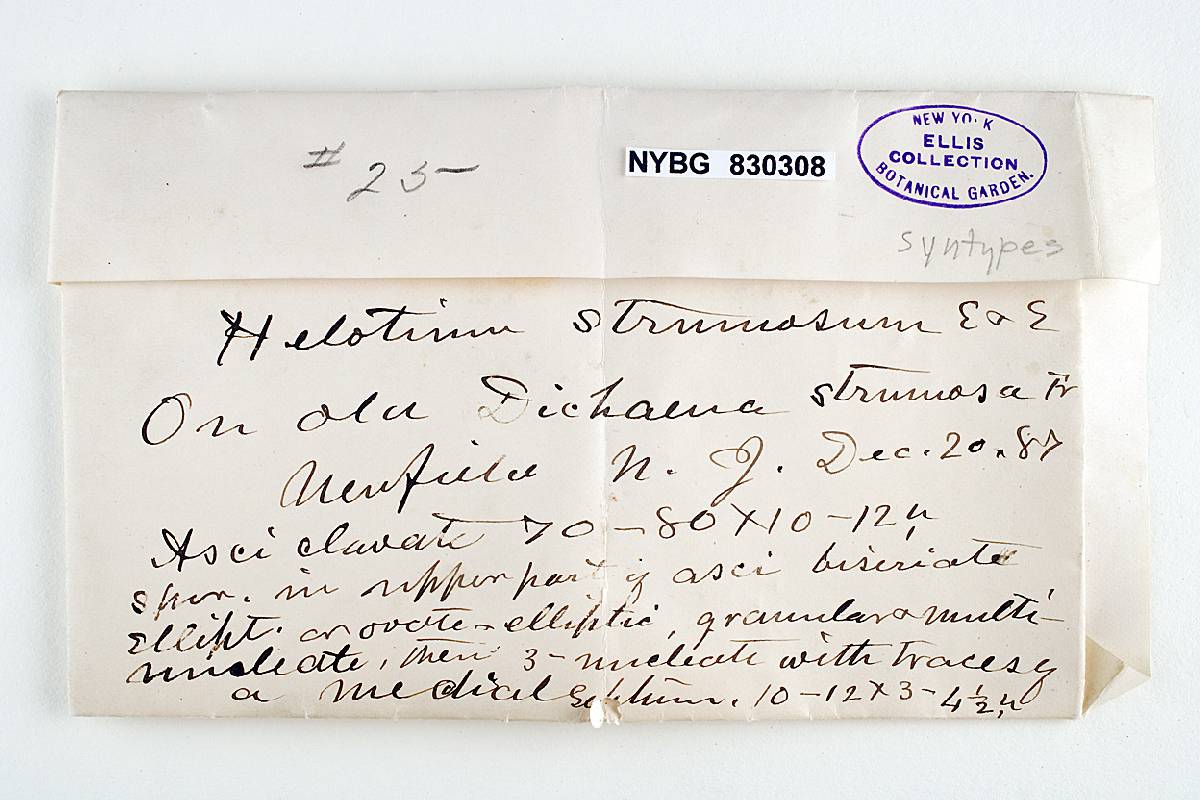 # 25
NYBG 830308
NEW YO K
ELLIS
COLLECTION
BOTANICAL GARDEN.
syntypes
Helotium strumosum E & E
On old Dichaena strumosa Fr
Newfield N. J. Dec. 20. 87
Asci clavate 70-80 x 10-12 µ
spor. in upper part of asci biseriate
Ellipt. or ovate-elliptic, granular & multi-
nucleate, then 3-nucleate with traces of
a medial septum. 10-12 x 3-4½ µ